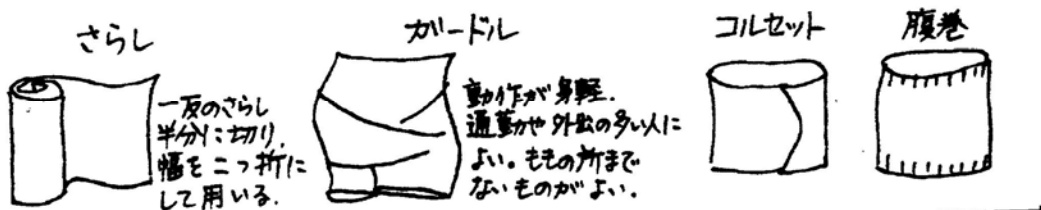 さらし
一反のさらし
半分に切り、
幅を二つ折に
して用いる.
ガードル
動作が身軽.
通勤や外出の多い人に
よい。ももの所まで
ないものがよい.
コルセット
腹巻